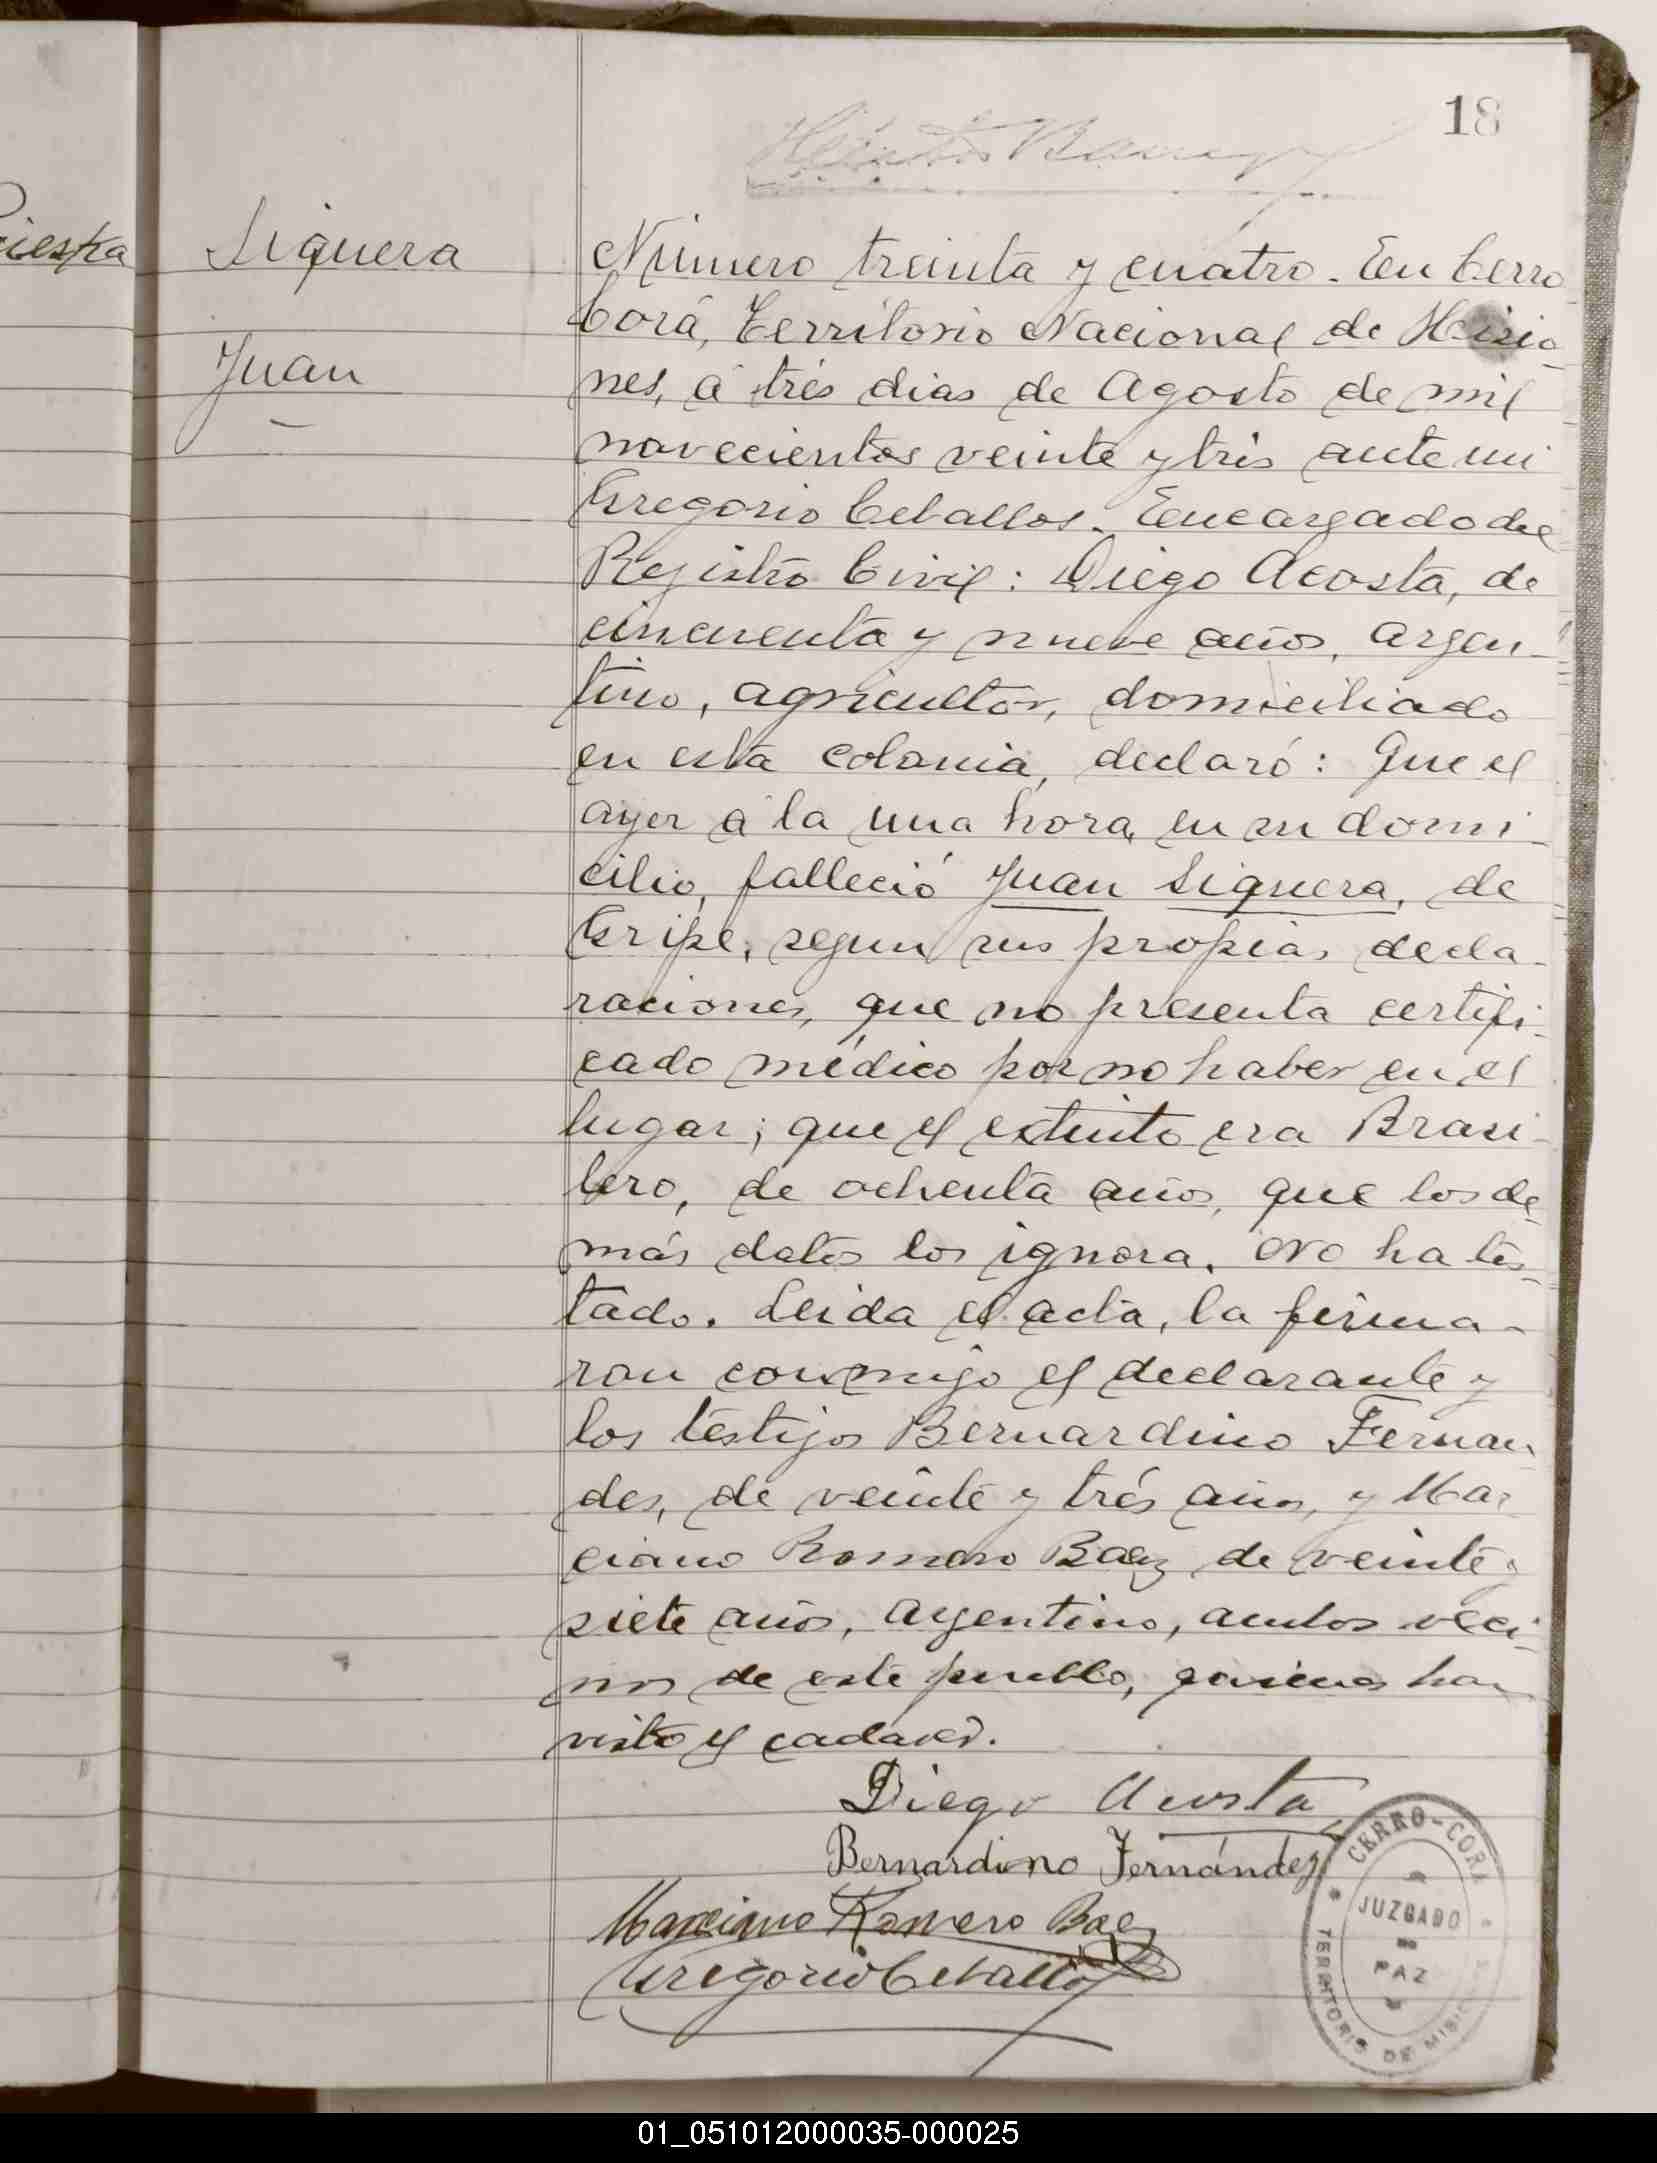 18
iestra
Siquera
Juan
Número treinta y cuatro. En Cerro
Corá, Territorio Nacional de Misio
nes, á trés dias de Agosto de mil
novecientos veinte y trés ante mi
Gregorio Ceballos. Encargado del
Registro Civil: Diego Acosta, de
cincuenta y nueve años, argen-
tino, agricultor, domiciliado
en esta colonia, declaró: Que el
ayer á la una hora, en su domi-
cilio, falleció Juan Siquera, de
Gripe, segun sus propias decla-
raciones, que no presenta certifi-
cado médico por no haber en el
lugar; que el extinto era Brasi-
lero, de ochenta años, que los de-
más datos los ignora. No ha tes-
tado. Leida el acta, la firma-
ron conmigo el declarante y
los testigos Bernardino Fernan-
des, de veinte y trés años, y Mar
ciano Romero Baez de veinte y
siete años, Argentino, ambos veci-
nos de este pueblo, quienes han
visto el cadaver.
Diego Acosta
Bernardino Fernández
Marciano Romero Baez
Gregorio Ceballos
CERRO-CORA
JUZGADO
DE
PAZ
TERRITORIO DE MISIONES
01_051012000035-000025